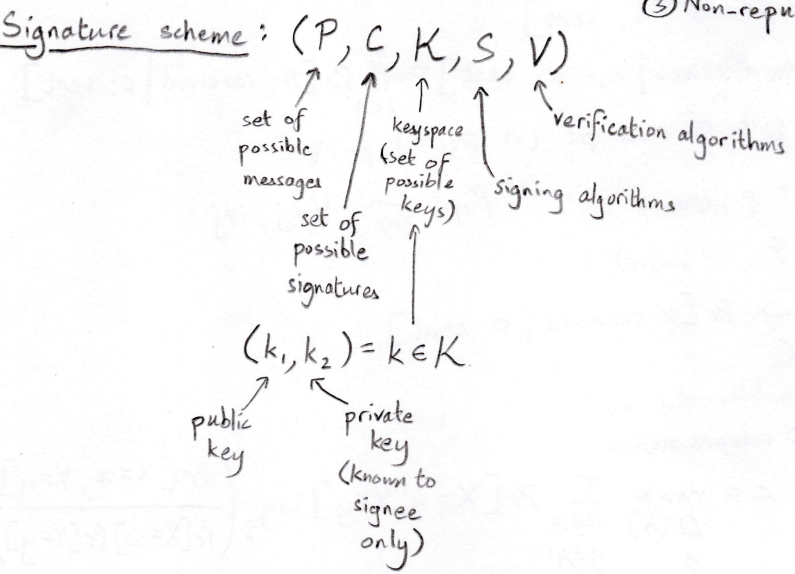 ③ Non-repu
Signature scheme: (P, C, K, S, V)
set of
possible
messages
set of
possible
signatures
keyspace
(set of
possible
keys)
signing algorithms
verification algorithms
(k₁, k₂) = k ∈ K
public
key
private
key
(known to
signee
only)